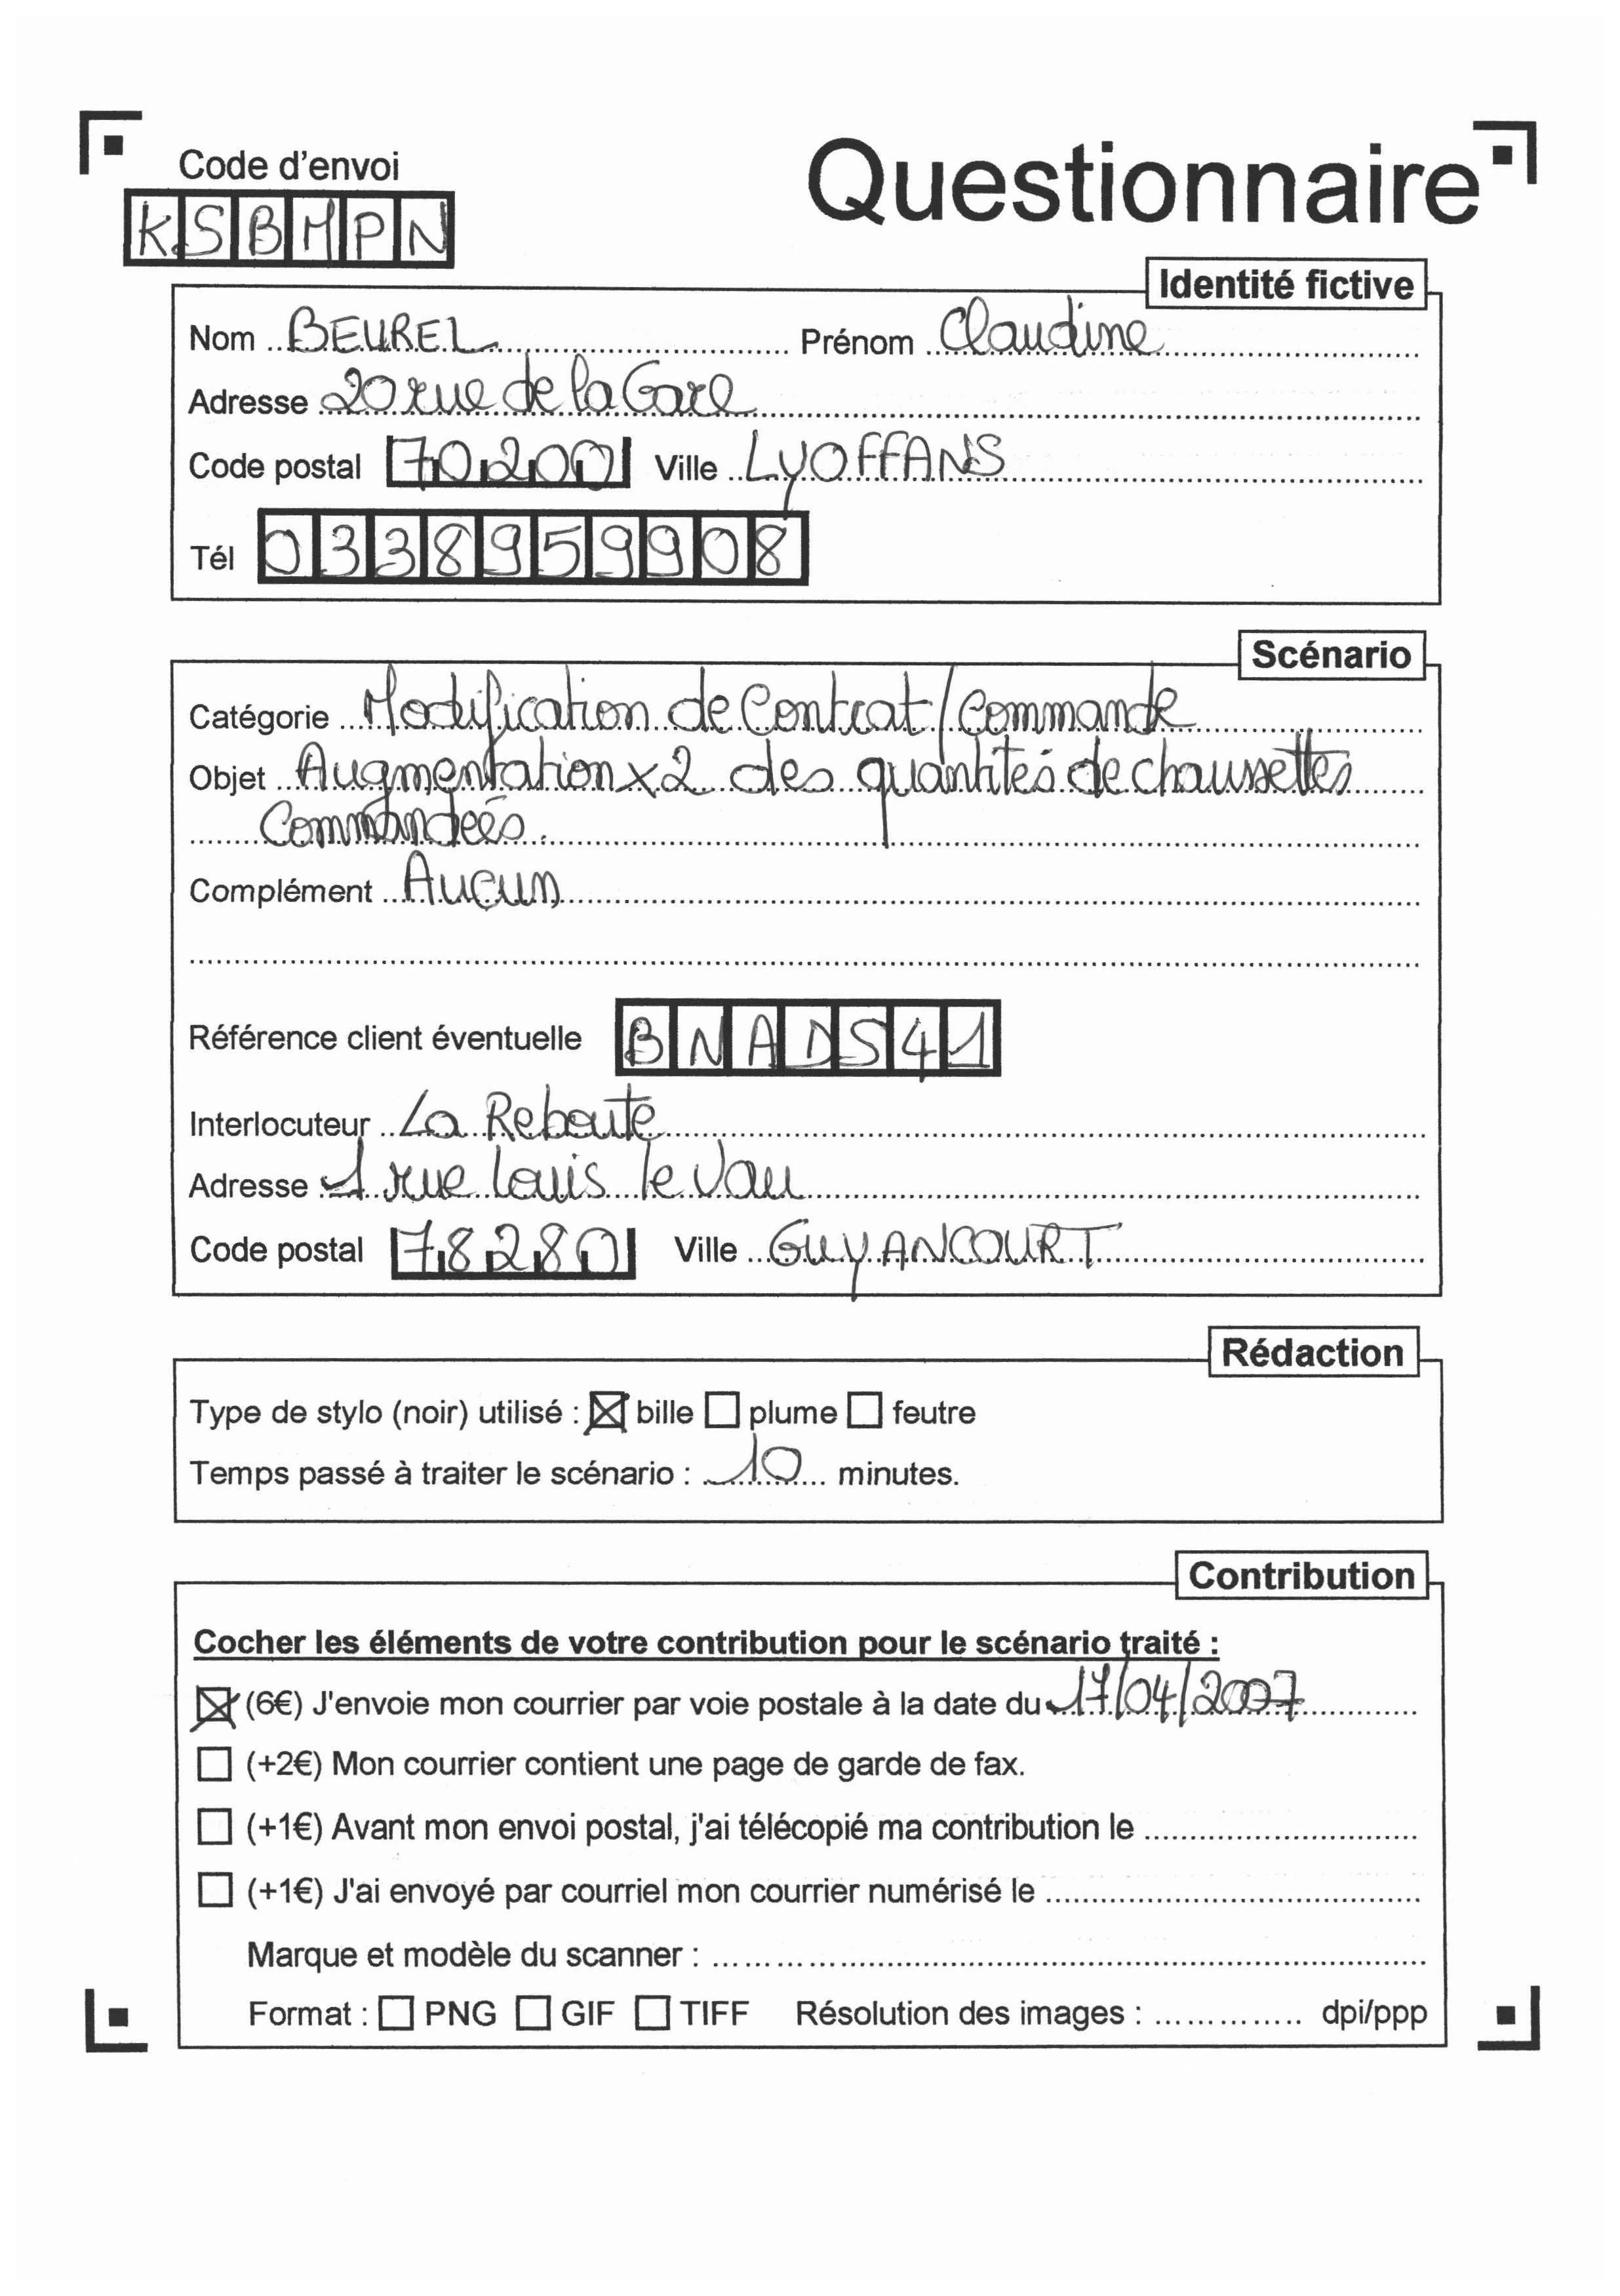 Code d'envoi
Questionnaire
KSBMPN
Identité fictive
Nom BEUREL Prénom Claudine
Adresse 20 rue de la Gare
Code postal 70200 Ville LYOFFANS
Tél 0338959908
Scénario
Catégorie Modification de Contrat/Commande
Objet Augmentation x2 des quantités de chaussettes
Commandées.
Complément Aucun
Référence client éventuelle BNADS41
Interlocuteur La Reboute
Adresse 1 rue Louis le Vau
Code postal 78280 Ville GUYANCOURT
Rédaction
Type de stylo (noir) utilisé : ☒ bille ☐ plume ☐ feutre
Temps passé à traiter le scénario : 10 minutes.
Contribution
Cocher les éléments de votre contribution pour le scénario traité :
☒ (6€) J'envoie mon courrier par voie postale à la date du 17/04/2007
☐ (+2€) Mon courrier contient une page de garde de fax.
☐ (+1€) Avant mon envoi postal, j'ai télécopié ma contribution le
☐ (+1€) J'ai envoyé par courriel mon courrier numérisé le
Marque et modèle du scanner :
Format : ☐ PNG ☐ GIF ☐ TIFF Résolution des images : dpi/ppp